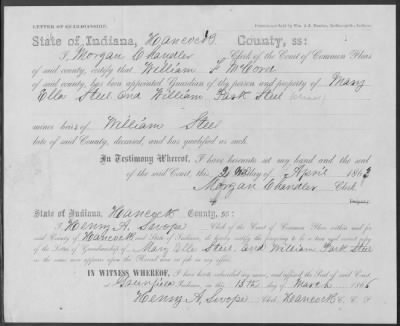 LETTER OF GUARDIANSHIP.
State of Indiana, Hancock County, ss:
I, Morgan Chandler Clerk of the Court of Common Pleas
of said county, certify that William F McCord
has been appointed Guardian of the person and property of Mary
Ella Steel and William Park Steel
minor heirs of William Steel
late of said County, deceased, and has qualified as such.
In Testimony Whereof, I have hereunto set my hand and the seal
of the said Court, this day of April 1863
Morgan Chandler Clerk
State of Indiana, Hancock County, ss:
I, Henry A. Swope Clerk of the Court of Common Pleas within and for
said County of Hancock and State of Indiana, do hereby certify the foregoing to be a true and correct copy
of the Letter of Guardianship of Mary Ella Steel and William Park Steel
as the same now appears upon the Record now on file in my office.
IN WITNESS WHEREOF, I have hereto subscribed my name, and affixed the Seal of said Court
at Greenfield Indiana, on this 15th day of March 1865
Henry A. Swope Clerk Hancock C. C. P.